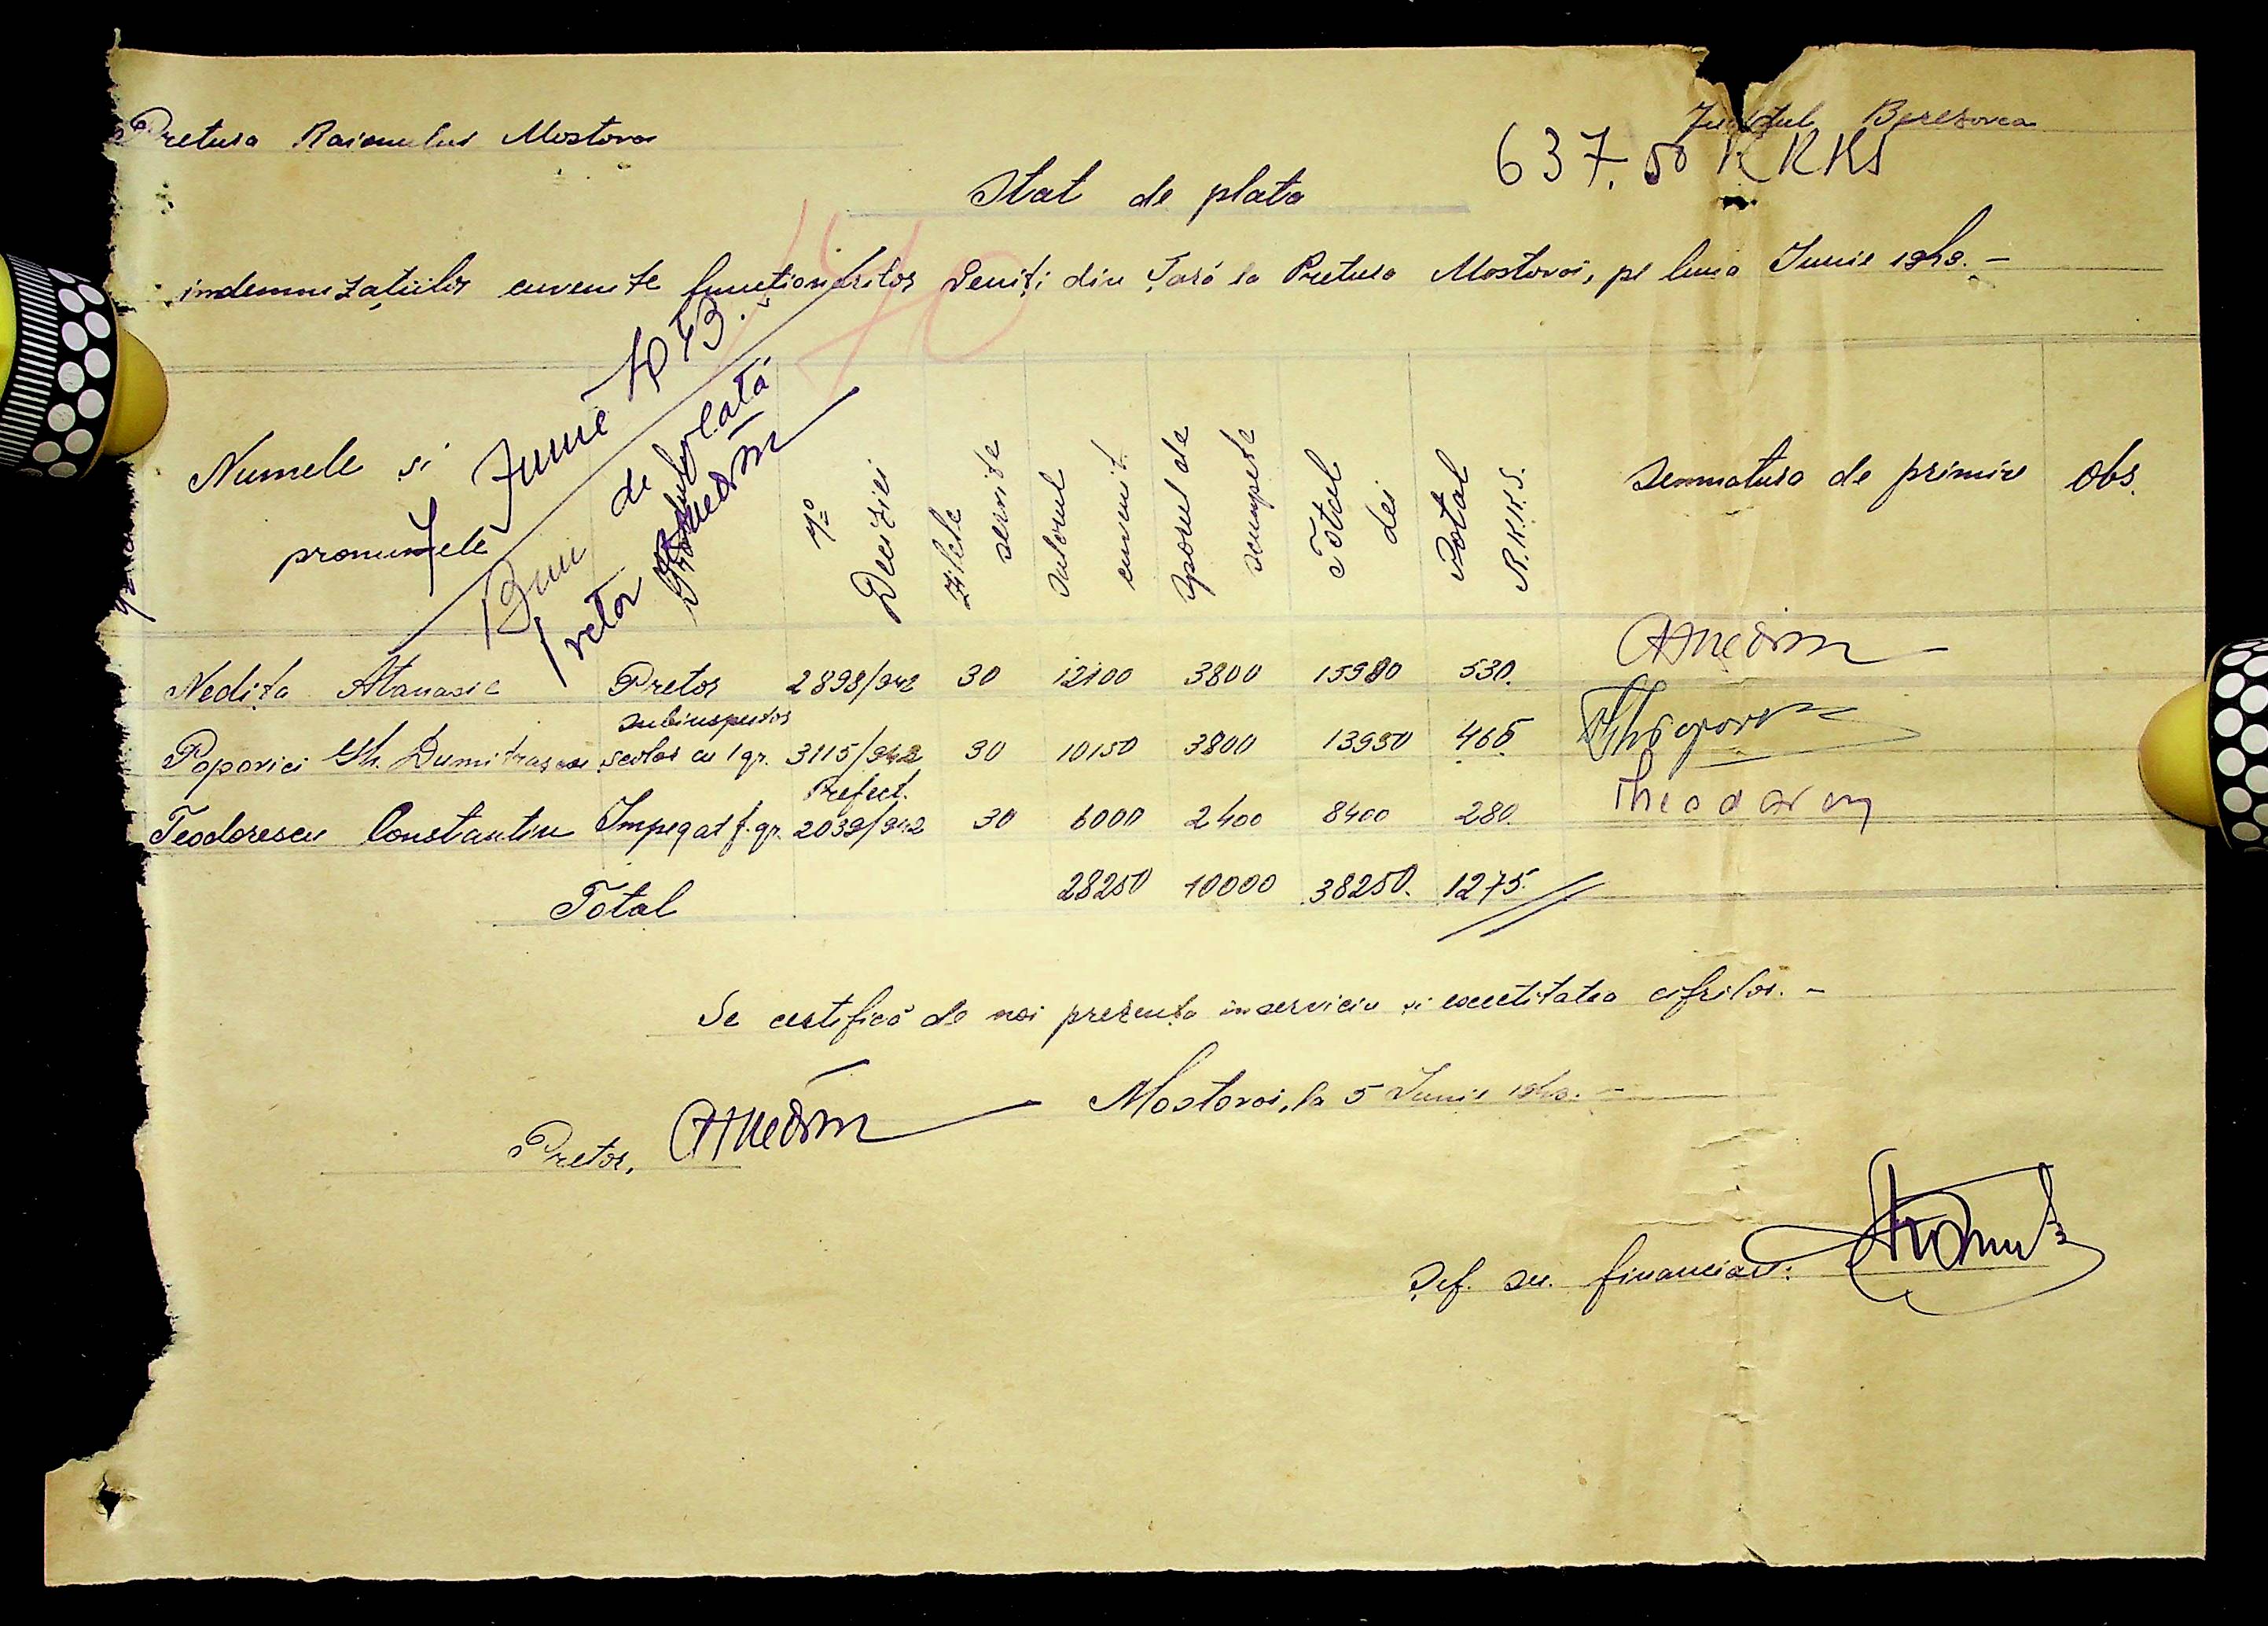 Pretura Raionului Mostovoi
Județul Beresovca
637.50 RKKS
Stat de plata
indemnizațiilor cuvenite functionarilor veniți din Țară la Pretura Mostovoi, pe luna Junie 1943. –
170
7 Junie 1943.
Bun de plată
Pretor
Numele și pronumele
No Deciziei
Zilele servite
Salarul cuvenit
Sporul de scumpete
Totul Lei
Total R.K.K.S.
Semnatura de primire
Obs.
Nedița Atanasie Pretor 2898/942 30 12100 3800 15900 530.
Popovici Gh. Dumitrașcu Subinspector scolar cu 1 gr. 3115/942 30 10150 3800 13950 465.
Teodorescu Constantin Impegat f. gr. Prefect. 2039/942 30 6000 2400 8400 280. Theodorou
Total 28250 10000 38250. 1275.
Se certifică de noi prezența in serviciu si exactitatea cifrilor. –
Mostovoi, la 5 Junie 1943. –
Pretor,
Șef. sv. financiar: